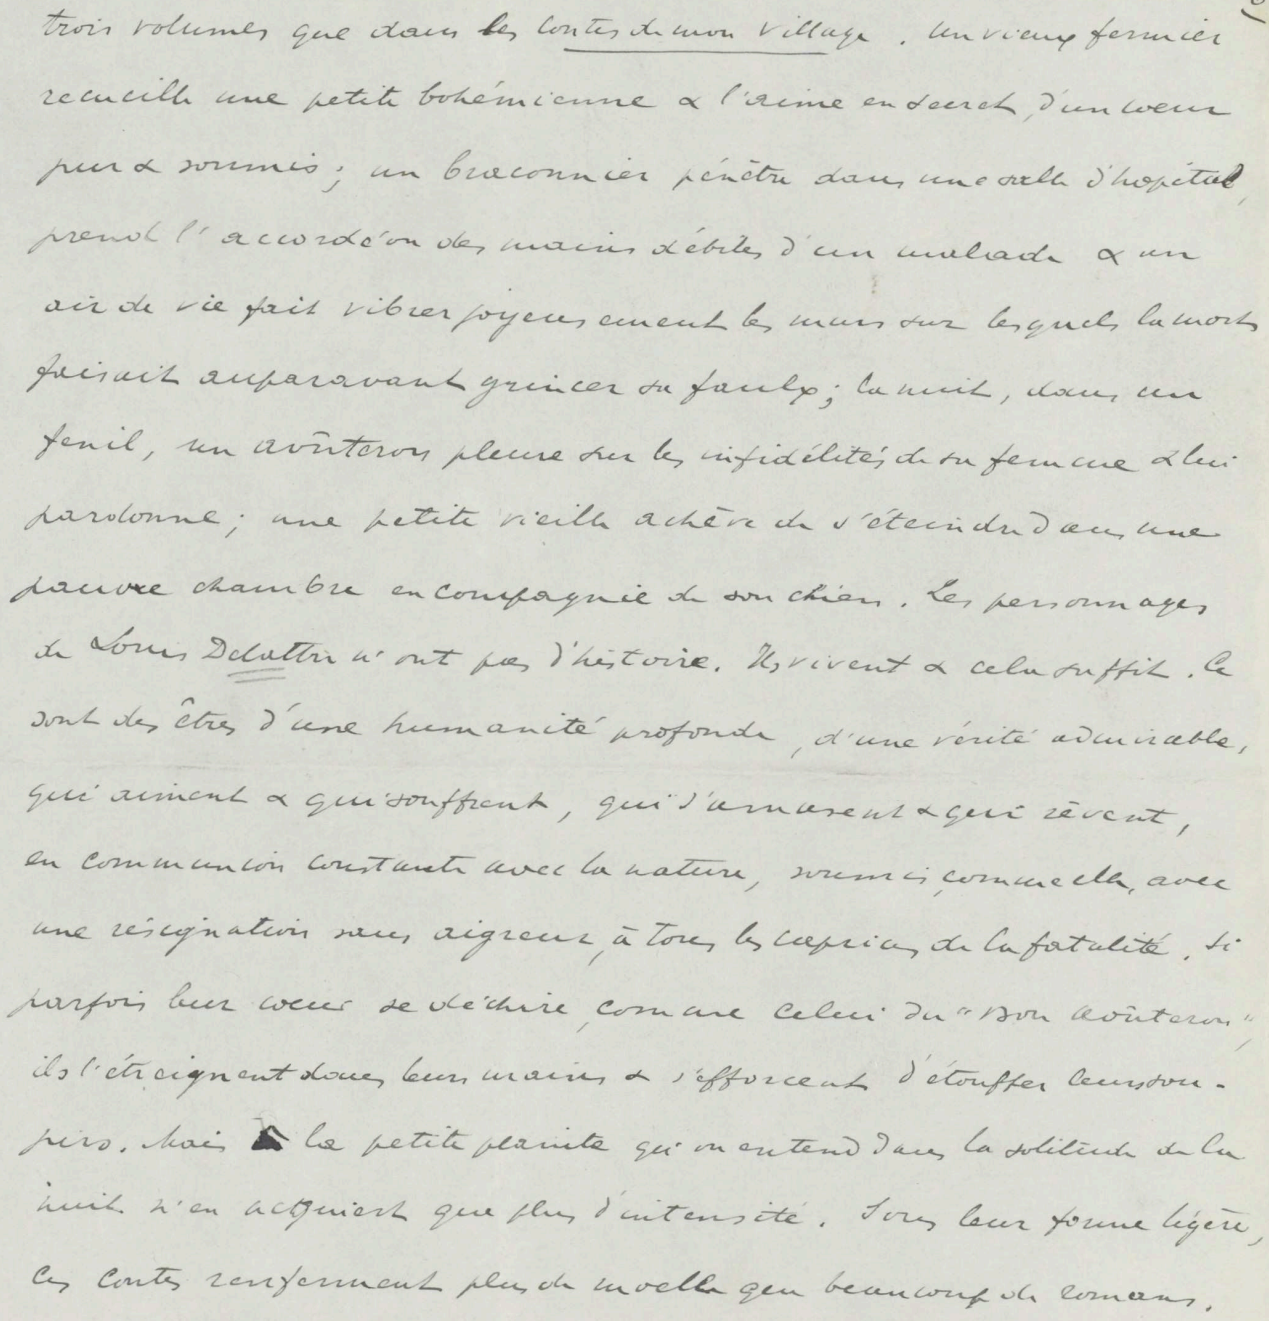 trois volumes que dans les Contes de mon Village. Un vieux fermier
recueille une petite bohémienne & l'aime en secret, d'un coeur
pur & soumis; un braconnier pénètre dans une salle d'hôpital,
prend l'accordéon des mains débiles d'un malade & un
air de vie fait vibrer joyeusement les murs sur lesquels la mort
faisait auparavant grincer sa faulx; la nuit, dans un
fenil, un aoûteron pleure sur les infidélités de sa femme & lui
pardonne; une petite vieille achève de s'éteindre dans une
pauvre chambre en compagnie de son chien. Les personnages
de Louis Delattre n'ont pas d'histoire. Ils vivent & cela suffit. Ce
sont des êtres d'une humanité profonde, d'une vérité admirable,
qui aiment & qui souffrent, qui s'amusent & qui rêvent,
en communion constante avec la nature, soumis, comme elle, avec
une résignation sans aigreur, à tous les caprices de la fatalité. Si
parfois leur coeur se déchire, comme celui du "Bon aoûteron",
ils l'étreignent dans leurs mains & s'efforcent d'étouffer leurs sou-
pirs. Mais la petite plainte qu'on entend dans la solitude de la
nuit n'en acquiert que plus d'intensité. Sous leur forme légère,
ces contes renferment plus de moelle que beaucoup de romans.